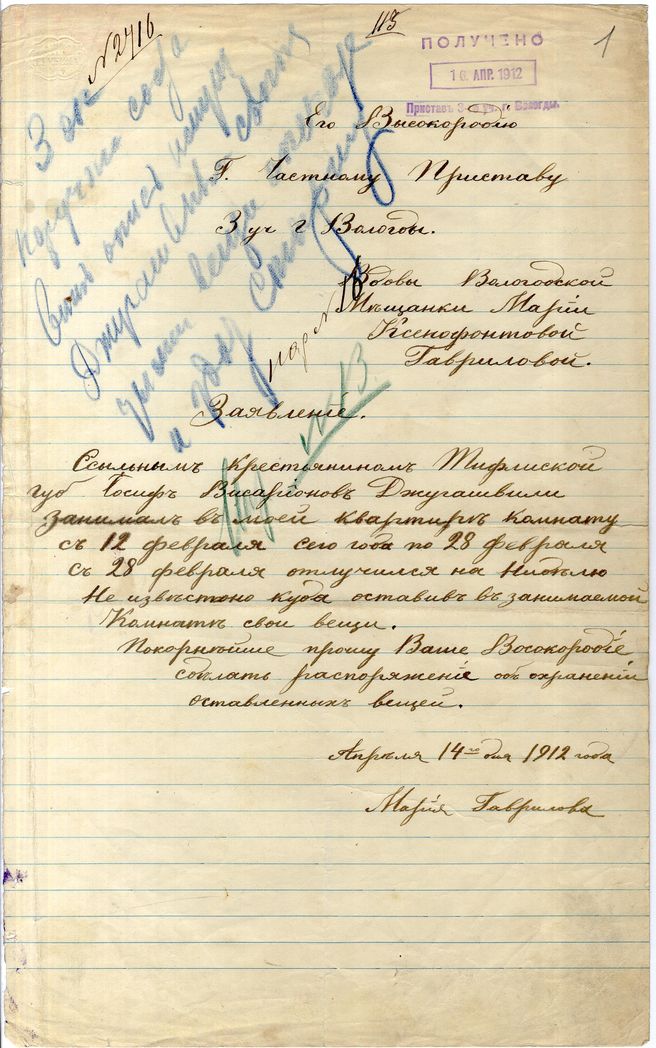 N 2716
113
1
ПОЛУЧЕНО
16 АПР. 1912
Приставъ 3-го уч. г. Вологды.
Его Высокородію
Г. Частному Приставу
3 уч г Вологды.
Вдовы Вологодской
Мѣщанки Маріи
Ксенофонтовой
Гавриловой.
N 13
Заявленіе.
Ссыльнымъ крестьяниномъ Тифлиской
губ Іосифъ Висаріоновъ Джугашвили
занималъ въ моей квартирѣ комнату
съ 12 февраля сего года по 28 февраля
съ 28 февраля отлучился на нидѣлю
Не извѣстено куда оставивъ въ занимаемой
Комнатѣ свои вещи.
Покорнѣйше прошу Ваше Восокородіе
сдѣлать распоряженіе объ охраненіи
оставленныхъ вещей.
Апрѣля 14го дня 1912 года
Марія Гаврилова